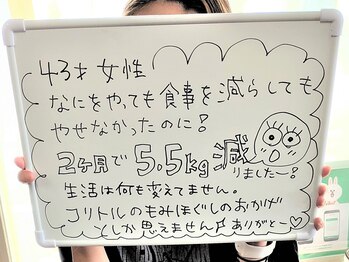 43才 女性
なにをやっても食事を減らしても
やせなかったのに!
2ヶ月で5.5kg減りました〜!
生活は何も変えてません。
コリトルのもみほぐしのおかげ
としか思えません♬ ありがと〜♡